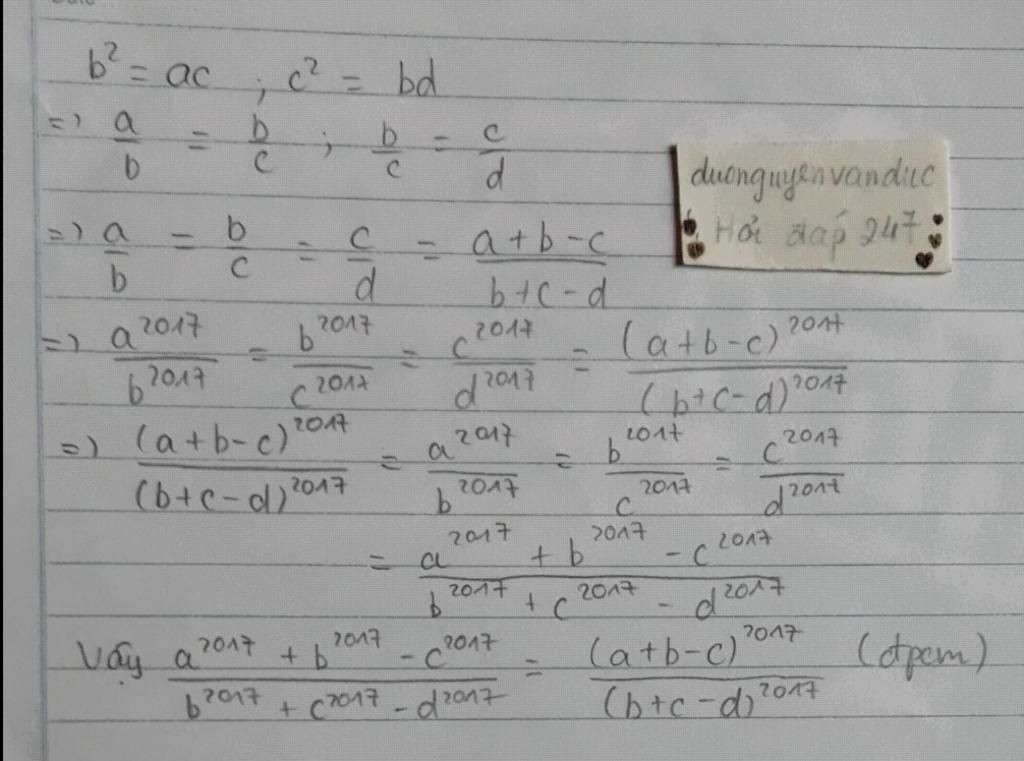 b² = ac ; c² = bd
=> a/b = b/c ; b/c = c/d
duonguyenvanduc
Hỏi đáp 247
=> a/b = b/c = c/d = (a+b-c)/(b+c-d)
=> a^2017/b^2017 = b^2017/c^2017 = c^2017/d^2017 = (a+b-c)^2017/(b+c-d)^2017
=> (a+b-c)^2017/(b+c-d)^2017 = a^2017/b^2017 = b^2017/c^2017 = c^2017/d^2017
= (a^2017 + b^2017 - c^2017)/(b^2017 + c^2017 - d^2017)
Vậy (a^2017 + b^2017 - c^2017)/(b^2017 + c^2017 - d^2017) = (a+b-c)^2017/(b+c-d)^2017 (đpcm)